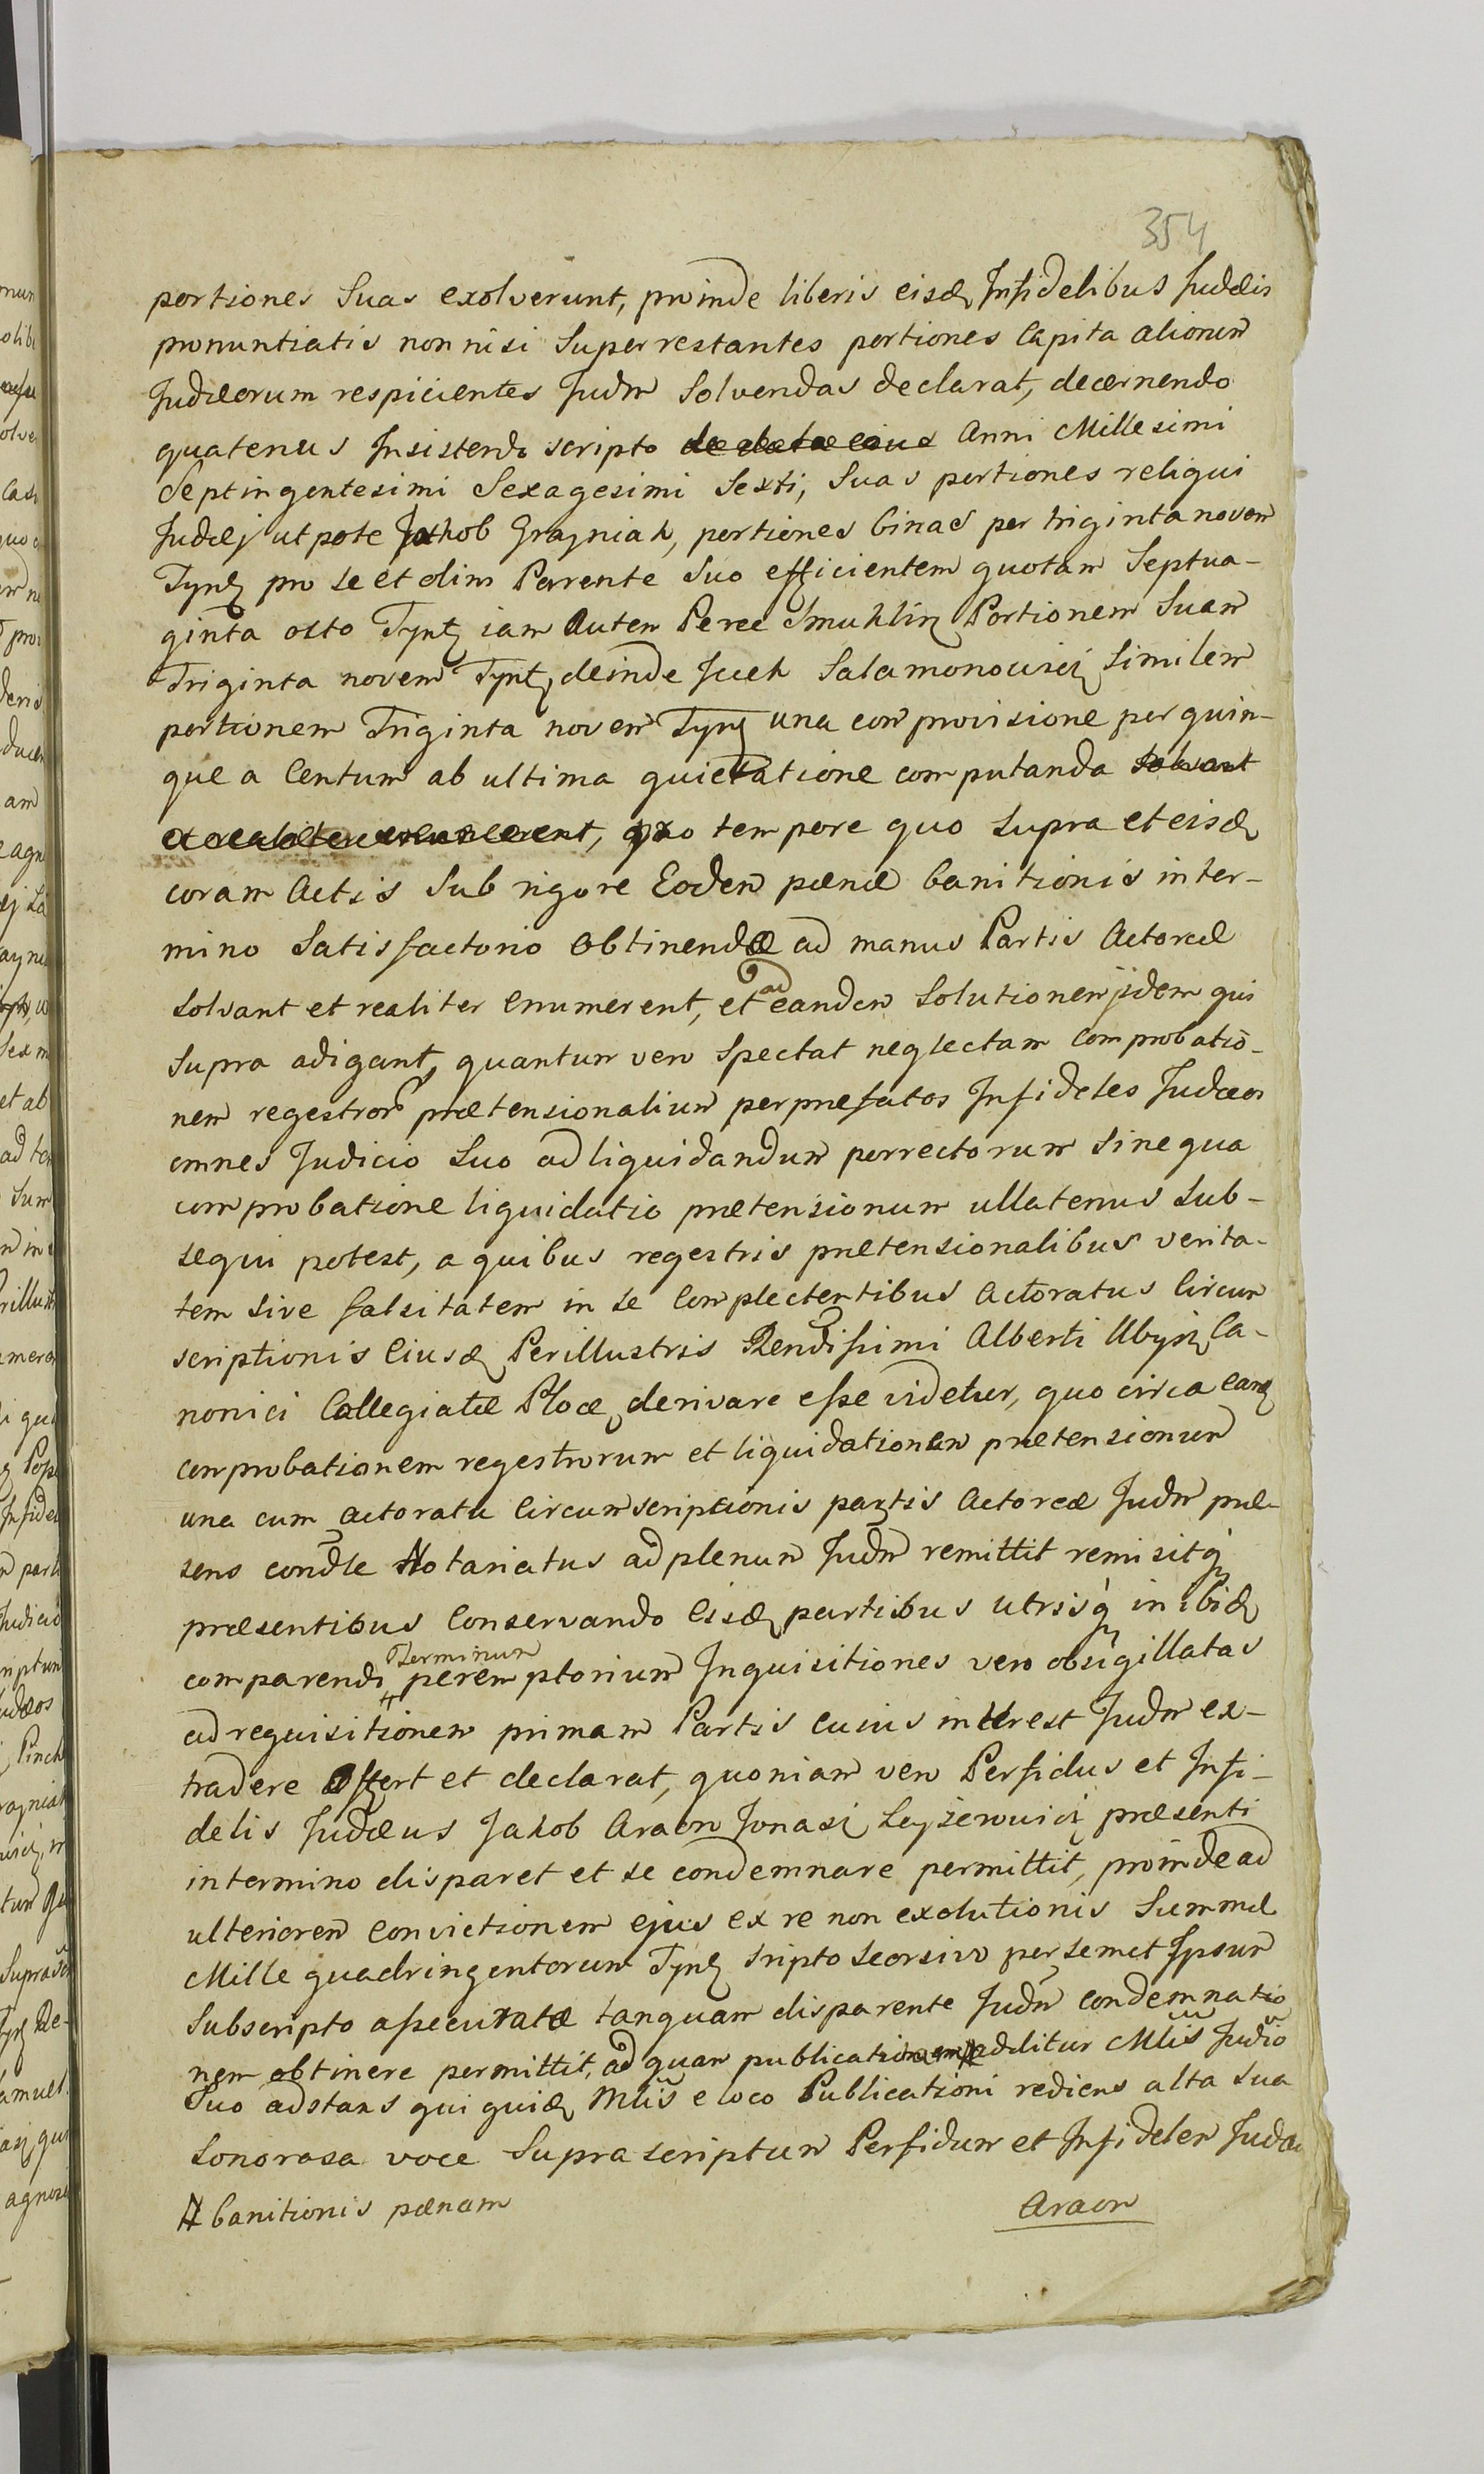 354
portiones Suas exolverunt, proinde liberis eisd Infidelibus Judæis
pronuntiatis non nisi Superrestantes portiones Capita aliorum
Judæorum respicientes Judm Solvendas declarat, decernendo
quatenus Insistendo scripto de data eius Anni Millesimi
Septingentesimi Sexagesimi Sexti, Suas portiones reliqui
Judæj utpote Jakob Grayniak, portiones binas per triginta novem
Tynf pro se et olim Parente Suo efficientem quotam Septua-
ginta octo Tynf iam autem Perec Smuklirz Portionem Suam
Triginta novem Tynf, deinde Jcek Salamonowicz Similem
portionem Triginta novem Tynf una cum provisione per quin-
que a Centum ab ultima quietatione computanda solvant
et realiter enumerent, pro tempore quo Supra et eisd
coram Actis Sub rigore Eodem pœnæ banitionis in ter-
mino Satisfactorio obtinendæ ad manus Partis Actoreæ
Solvant et realiter enumerent, et ad eandem Solutionem jidem qui
Supra adigant, quantum vero Spectat neglectam comprobatio-
nem regestror prætensionalium per præfatos Infideles Judæos
omnes Judicio Suo ad liquidandum porrectorum Sine qua
comprobatione liquidatio prætensionum ullatenus Sub-
sequi potest, a quibus regestris prætensionalibus verita-
tem sive falsitatem in se Complectentibus Actoratus Circum
scriptionis Eiusd Perillustris Rendissimi Alberti Ubysz Ca-
nonici Collegiatæ Ploc derivare esse videtur, quo circa eand
comprobationem regestrorum et liquidationem prætensionum
una cum actoratu Circumscriptionis partis Actoreæ Judm præ-
sens condle Notariatus ad plenum Judm remittit remisitq
præsentibus Conservando Eisd partibus utrisq in ibid
comparendi Terminum peremptorium Inquisitiones vero obsigillatas
ad requisitionem primam Partis cuius interest Judm ex-
tradere offert et declarat, quoniam vero Perfidus et Infi-
delis Judæus Jakob Araon Jonasz Leyzerowicz præsenti
in termino disparet et se condemnare permittit, proinde ad
ulteriorem Convictionem ejus ex re non exolutionis Summæ
Mille quadringentorum Tynf sripto seorsivo per semet Ipsum
Subscripto assecuratæ tanquam disparente Judm condemnatio
nem obtinere permittit, ad quam publicationem additur Mlis Judio
Suo adstans qui quid Mlis e loco Publicationi rediens alta sua
Sonorosa voce Supra scriptum Perfidum et Infidelem Judæ
# banitionis pænam
Araon